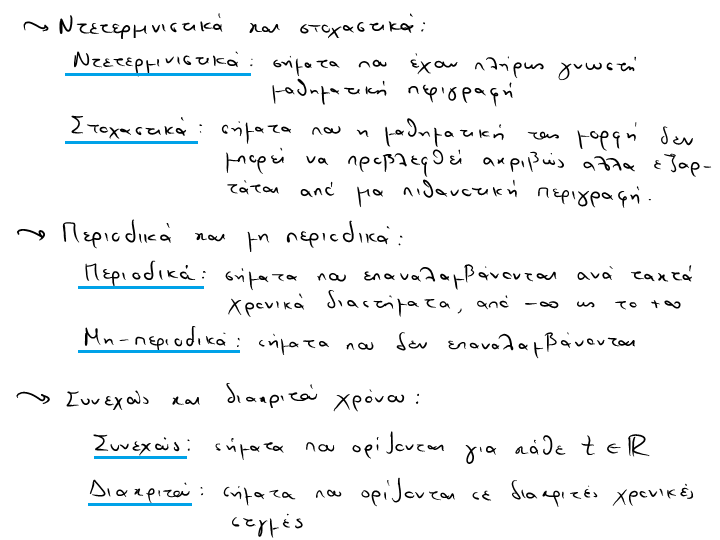 ~> Ντετερμινιστικά και στοχαστικά:
Ντετερμινιστικά: σήματα που έχουν πλήρως γνωστή
μαθηματική περιγραφή
Στοχαστικά: σήματα που η μαθηματική τους μορφή δεν
μπορεί να προβλεφθεί ακριβώς αλλα εξαρ-
τάται από μια πιθανοτική περιγραφή.
~> Περιοδικά και μη περιοδικά:
Περιοδικά: σήματα που επαναλαμβάνονται ανά τακτά
χρονικά διαστήματα, από -∞ ως το +∞
Μη-περιοδικά: σήματα που δεν επαναλαμβάνονται
~> Συνεχούς και διακριτού χρόνου:
Συνεχούς: σήματα που ορίζονται για κάθε t ∈ ℝ
Διακριτού: σήματα που ορίζονται σε διακριτές χρονικές
στιγμές